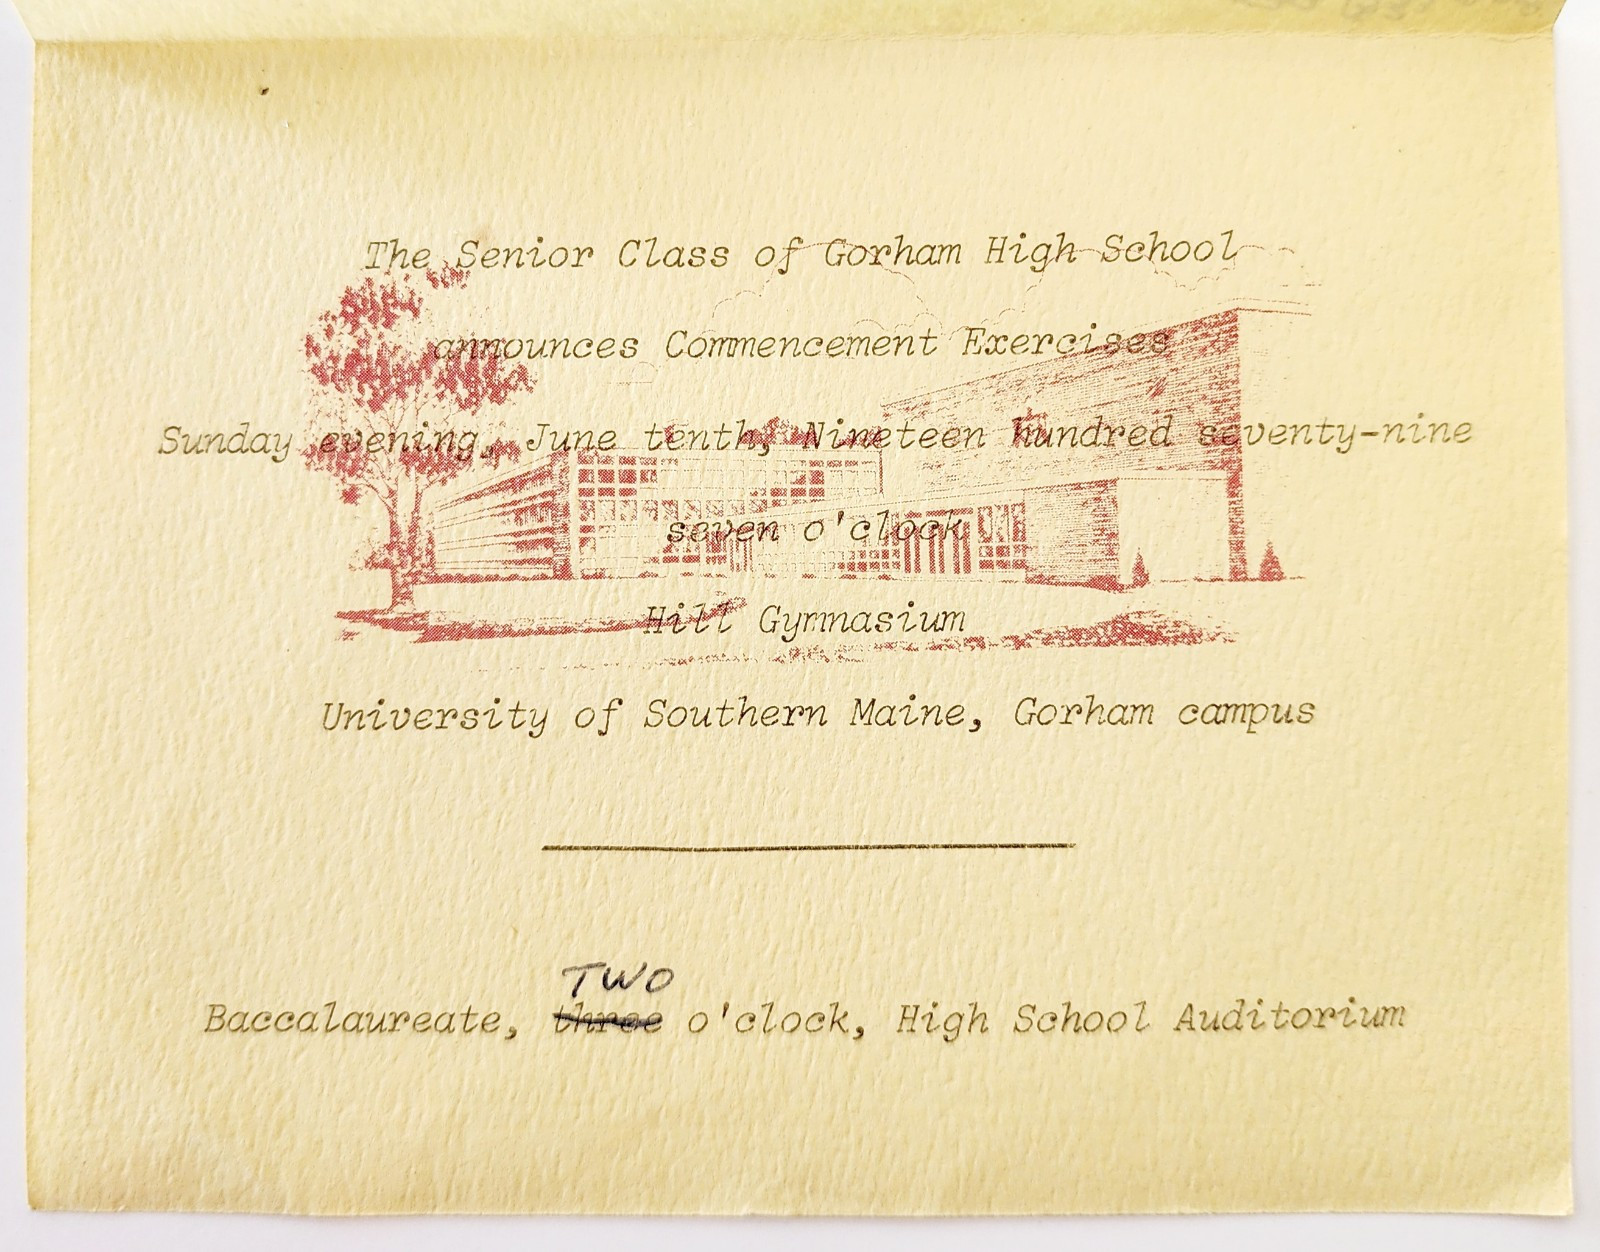 The Senior Class of Gorham High School
announces Commencement Exercises
Sunday evening, June tenth, Nineteen hundred seventy-nine
seven o'clock
Hill Gymnasium
University of Southern Maine, Gorham campus
TWO
Baccalaureate, three o'clock, High School Auditorium